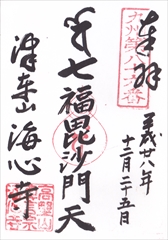 奉拝
九州第八十五番
平成廿八年
十二月二十五日
七福毘沙門天
津東山 海心寺